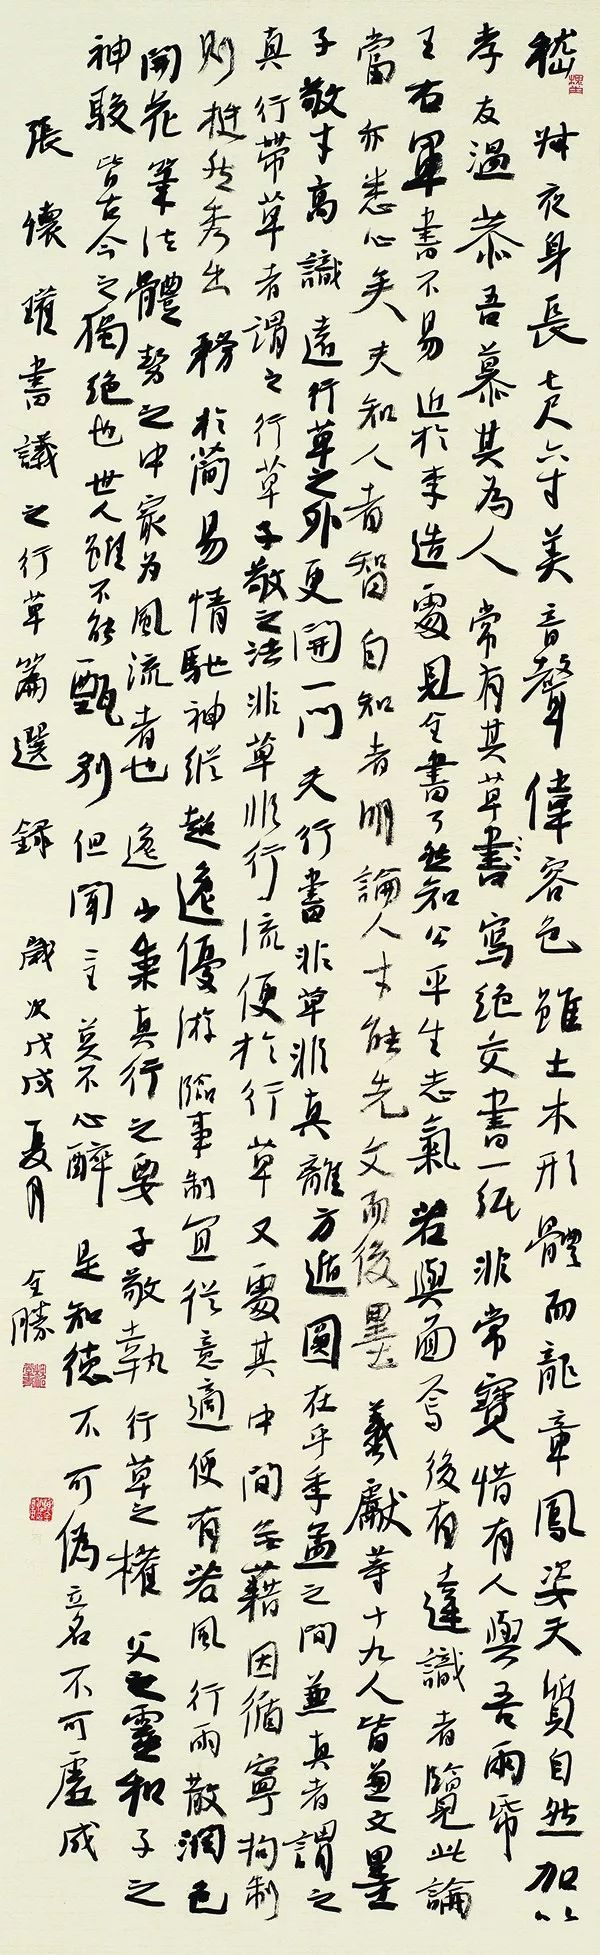 嵇叔夜身長七尺六寸美音聲偉容色雖土木形體而龍章鳳姿天質自然加以
孝友溫恭吾慕其為人常有其草書寫絕交書一紙非常寶惜有人與吾兩帋
王右軍書不易近於李造處見全書了然知公平生志氣若與面焉後有達識者覽此論
當亦悉心矣夫知人者智自知者明論人才能先文而後墨羲獻等十九人皆兼文墨
子敬才高識遠行草之外更開一門夫行書非草非真離方遁圓在乎季孟之間兼真者謂之
真行帶草者謂之行草子敬之法非草非行流便於行草又處其中間無藉因循寧拘制
則挺然秀出務於簡易情馳神縱超逸優游臨事制宜從意適便有若風行雨散潤色
開花筆法體勢之中最為風流者也逸少秉真行之要子敬執行草之權父之靈和子之
神駿皆古今之獨絕也世人雖不能甄別但聞二王莫不心醉是知德不可偽立名不可虛成
張懷瓘書議之行草篇選錄歲次戊戌夏月全勝